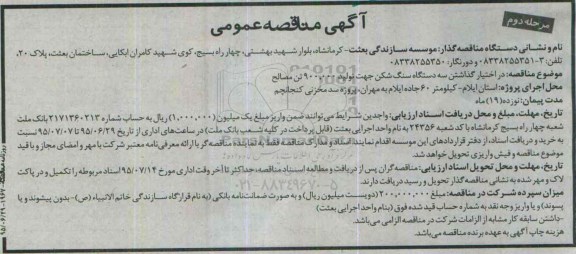 مرحله دوم
آگهی مناقصه عمومی
نام و نشانی دستگاه مناقصه‌گذار: موسسه سازندگی بعثت- کرمانشاه، بلوار شهید بهشتی، چهار راه بسیج، کوی شهید کامران ابکایی، ساختمان بعثت، پلاک ۲۰،
تلفن: ۳-۰۸۳۳۸۲۵۵۳۵۱ و دورنگار: ۰۸۳۳۸۲۵۵۳۵۰
موضوع مناقصه: در اختیار گذاشتن سه دستگاه سنگ شکن جهت تولید ۹۰۰۰۰۰ تن مصالح
محل اجرای پروژه: استان ایلام- کیلومتر ۶۰ جاده ایلام به مهران، پروژه سد مخزنی کنجانچم
مدت پیمان: نوزده (۱۹) ماه
تاریخ، مهلت، مبلغ و محل دریافت اسناد ارزیابی: واجدین شرایط می‌توانند ضمن واریز مبلغ یک میلیون (۱,۰۰۰,۰۰۰) ریال به حساب شماره ۲۱۷۱۳۶۰۲۱۳ بانک ملت
شعبه چهار راه بسیج کرمانشاه با کد شعبه ۲۴۳۵۶ به نام واحد اجرایی بعثت (قابل پرداخت در کلیه شعب بانک ملت) در ساعت‌های اداری از تاریخ ۹۵/۰۶/۲۹ تا ۹۵/۰۷/۰۷ نسبت
به خرید و دریافت اسناد، از دفتر قراردادهای این موسسه اقدام نمایند. اسناد و مدارک مناقصه فقط به نماینده مناقصه‌گر با ارائه معرفی‌نامه معتبر شرکت با مهر و امضای مجاز و با قید
موضوع مناقصه و فیش واریزی تحویل خواهد شد.
تاریخ، مهلت و محل تحویل اسناد ارزیابی: مناقصه‌گران پس از دریافت و مطالعه اسناد مناقصه، حداکثر تا آخر وقت اداری مورخ ۹۵/۰۷/۱۴ اسناد مربوطه را تکمیل و در پاکت
لاک و مهر شده به نشانی مناقصه‌گذار تحویل و رسید دریافت دارند.
میزان سپرده شرکت در مناقصه: مبلغ ۲۰۰,۰۰۰,۰۰۰ (دویست میلیون ریال) و به صورت ضمانت‌نامه بانکی (به نام قرارگاه سازندگی خاتم الانبیاء (ص)- بدون پیشوند و یا
پسوند) و یا واریز وجه نقد به شماره حساب قید شده فوق (بنام واحد اجرایی بعثت)
-داشتن سابقه کار مشابه از الزامات شرکت در مناقصه الزامی می‌باشد.
هزینه چاپ آگهی به عهده برنده مناقصه می‌باشد.